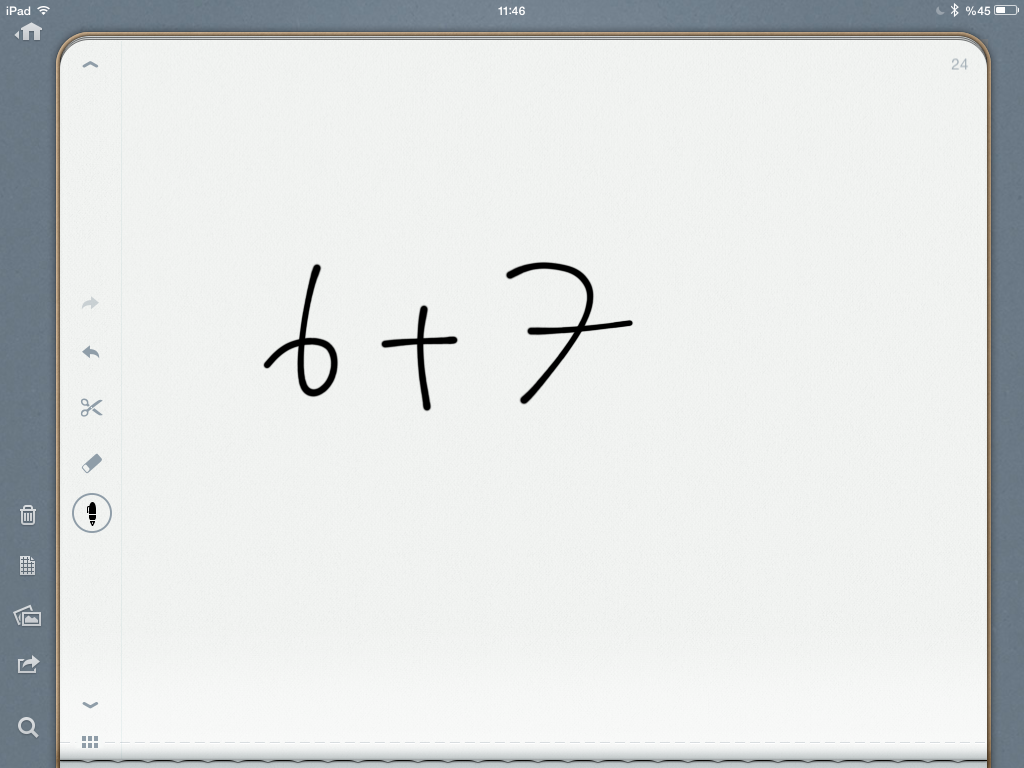 iPad 11:46 %45
24
6 + 7